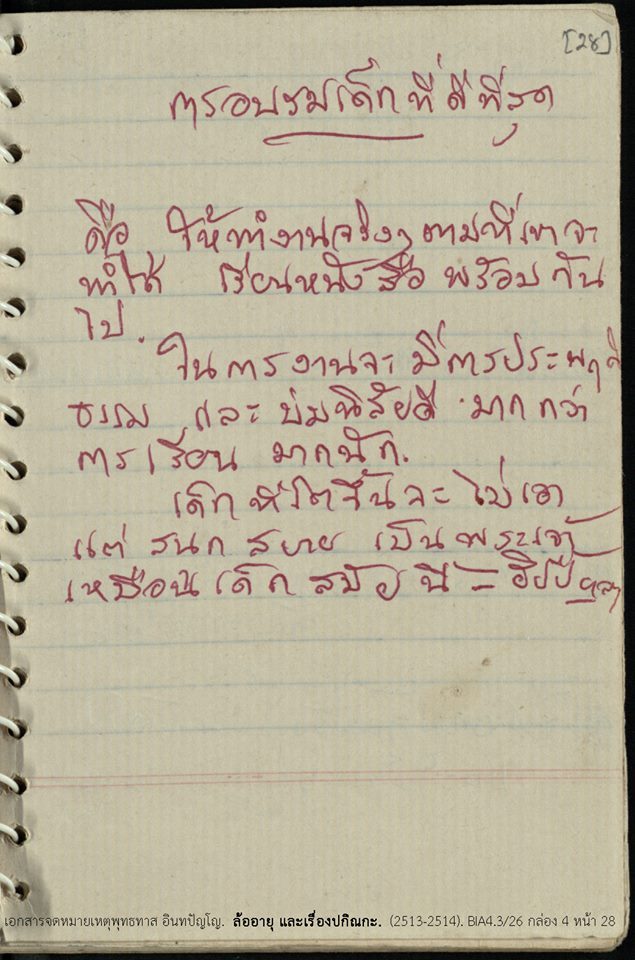 [28]
การอบรมเด็กที่ดีที่สุด
คือ ให้ทำงานจริงๆ ตามที่เขาจะ
ทำได้ เรียนหนังสือ พร้อมกัน
ไป.
ในการงานจะมีการประพฤติ
ธรรม และ บ่มนิสัยดี มากกว่า
การเรียน มากนัก.
เด็กที่โตขึ้นจะไม่เอา
แต่ สนุก สบาย เป็นพระเจ้า
เหมือนเด็กสมัยนี้ = ฮิปปี้
เอกสารจดหมายเหตุพุทธทาส อินทปัญโญ. ล้ออายุ และเรื่องปกิณกะ. (2513-2514). BIA4.3/26 กล่อง 4 หน้า 28